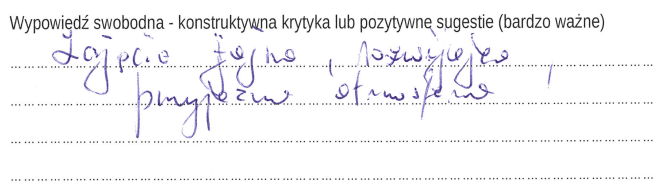 Wypowiedź swobodna - konstruktywna krytyka lub pozytywne sugestie (bardzo ważne)
Zajęcia fajne, rozwijające,
przyjazna atmosfera